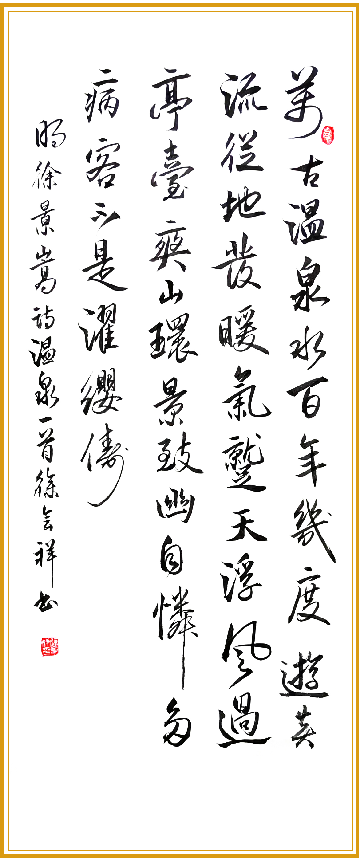 萬古温泉水百年幾度遊黄
流從地發暖氣蹵天浮風過
亭臺爽山環景致幽自憐多
病客不是濯纓儔
明徐景嵩詩温泉一首徐会祥书